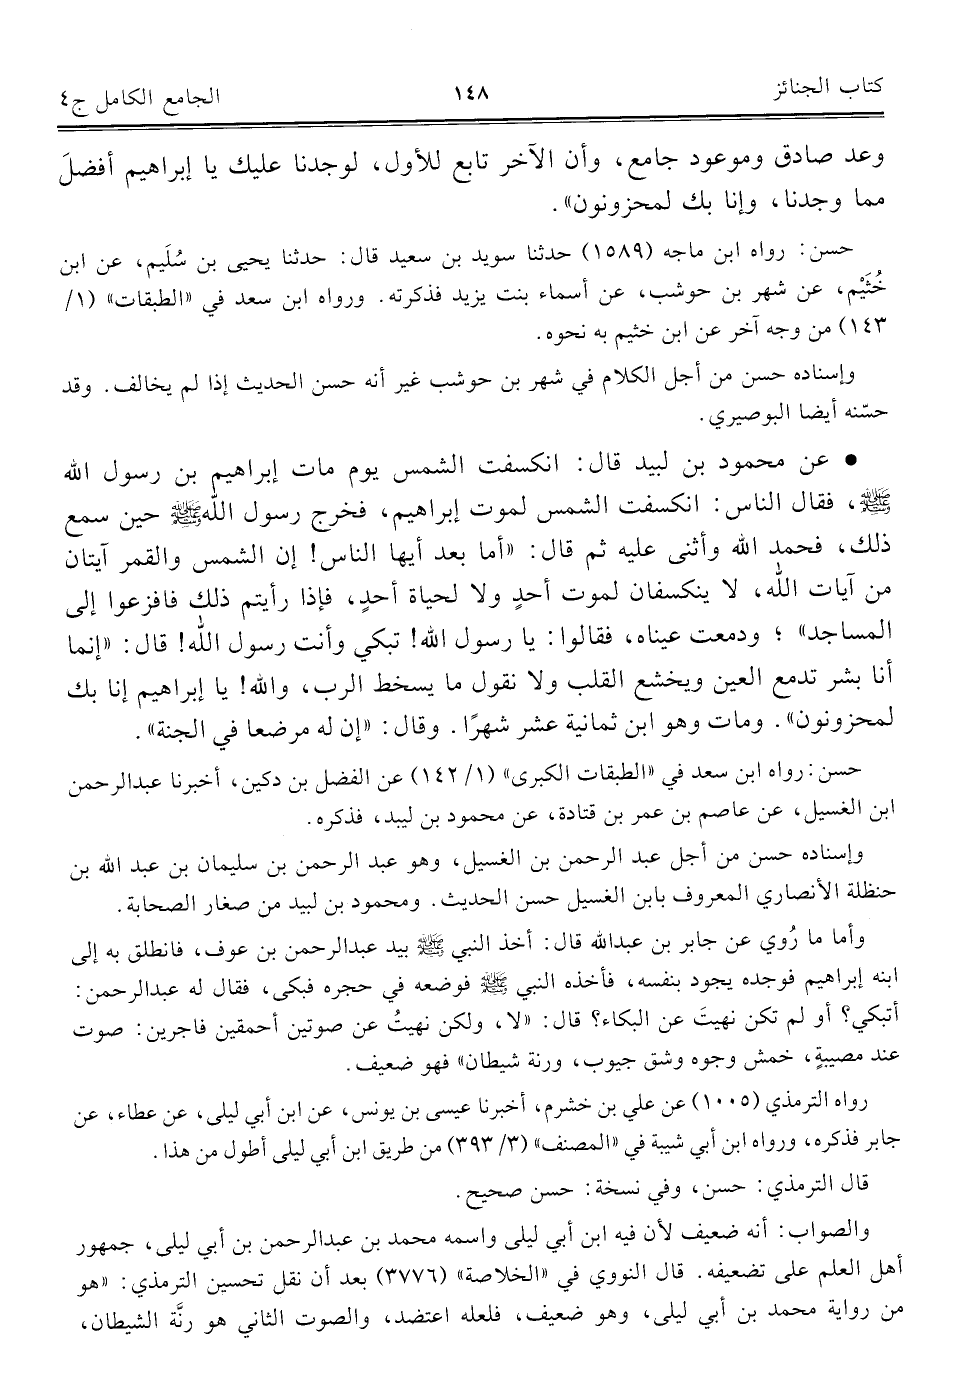 كتاب الجنائز ١٤٨ الجامع الكامل ج٤
وعد صادق وموعود جامع، وأن الآخر تابع للأول، لوجدنا عليك يا إبراهيم أفضلَ
مما وجدنا، وإنا بك لمحزونون».
حسن: رواه ابن ماجه (١٥٨٩) حدثنا سويد بن سعيد قال: حدثنا يحيى بن سُلَيم، عن ابن
خُثَيْم، عن شهر بن حوشب، عن أسماء بنت يزيد فذكرته. ورواه ابن سعد في «الطبقات» (١/
١٤٣) من وجه آخر عن ابن خثيم به نحوه.
وإسناده حسن من أجل الكلام في شهر بن حوشب غير أنه حسن الحديث إذا لم يخالف. وقد
حسّنه أيضا البوصيري.
● عن محمود بن لبيد قال: انكسفت الشمس يوم مات إبراهيم بن رسول الله
ﷺ، فقال الناس: انكسفت الشمس لموت إبراهيم، فخرج رسول اللهﷺ حين سمع
ذلك، فحمد الله وأثنى عليه ثم قال: «أما بعد أيها الناس! إن الشمس والقمر آيتان
من آيات الله، لا ينكسفان لموت أحدٍ ولا لحياة أحدٍ، فإذا رأيتم ذلك فافزعوا إلى
المساجد» ؛ ودمعت عيناه، فقالوا: يا رسول الله! تبكي وأنت رسول الله! قال: «إنما
أنا بشر تدمع العين ويخشع القلب ولا نقول ما يسخط الرب، والله! يا إبراهيم إنا بك
لمحزونون». ومات وهو ابن ثمانية عشر شهرًا. وقال: «إن له مرضعا في الجنة».
حسن: رواه ابن سعد في «الطبقات الكبرى» (١/ ١٤٢) عن الفضل بن دكين، أخبرنا عبدالرحمن
ابن الغسيل، عن عاصم بن عمر بن قتادة، عن محمود بن ليبد، فذكره.
وإسناده حسن من أجل عبد الرحمن بن الغسيل، وهو عبد الرحمن بن سليمان بن عبد الله بن
حنظلة الأنصاري المعروف بابن الغسيل حسن الحديث. ومحمود بن لبيد من صغار الصحابة.
وأما ما رُوي عن جابر بن عبدالله قال: أخذ النبي ﷺ بيد عبدالرحمن بن عوف، فانطلق به إلى
ابنه إبراهيم فوجده يجود بنفسه، فأخذه النبي ﷺ فوضعه في حجره فبكى، فقال له عبدالرحمن:
أتبكي؟ أو لم تكن نهيتَ عن البكاء؟ قال: «لا، ولكن نهيتُ عن صوتين أحمقين فاجرين: صوت
عند مصيبةٍ، خمش وجوه وشق جيوب، ورنة شيطان» فهو ضعيف.
رواه الترمذي (١٠٠٥) عن علي بن خشرم، أخبرنا عيسى بن يونس، عن ابن أبي ليلى، عن عطاء، عن
جابر فذكره، ورواه ابن أبي شيبة في «المصنف» (٣/ ٣٩٣) من طريق ابن أبي ليلى أطول من هذا.
قال الترمذي: حسن، وفي نسخة: حسن صحيح.
والصواب: أنه ضعيف لأن فيه ابن أبي ليلى واسمه محمد بن عبدالرحمن بن أبي ليلى، جمهور
أهل العلم على تضعيفه. قال النووي في «الخلاصة» (٣٧٧٦) بعد أن نقل تحسين الترمذي: «هو
من رواية محمد بن أبي ليلى، وهو ضعيف، فلعله اعتضد، والصوت الثاني هو رنَّة الشيطان،